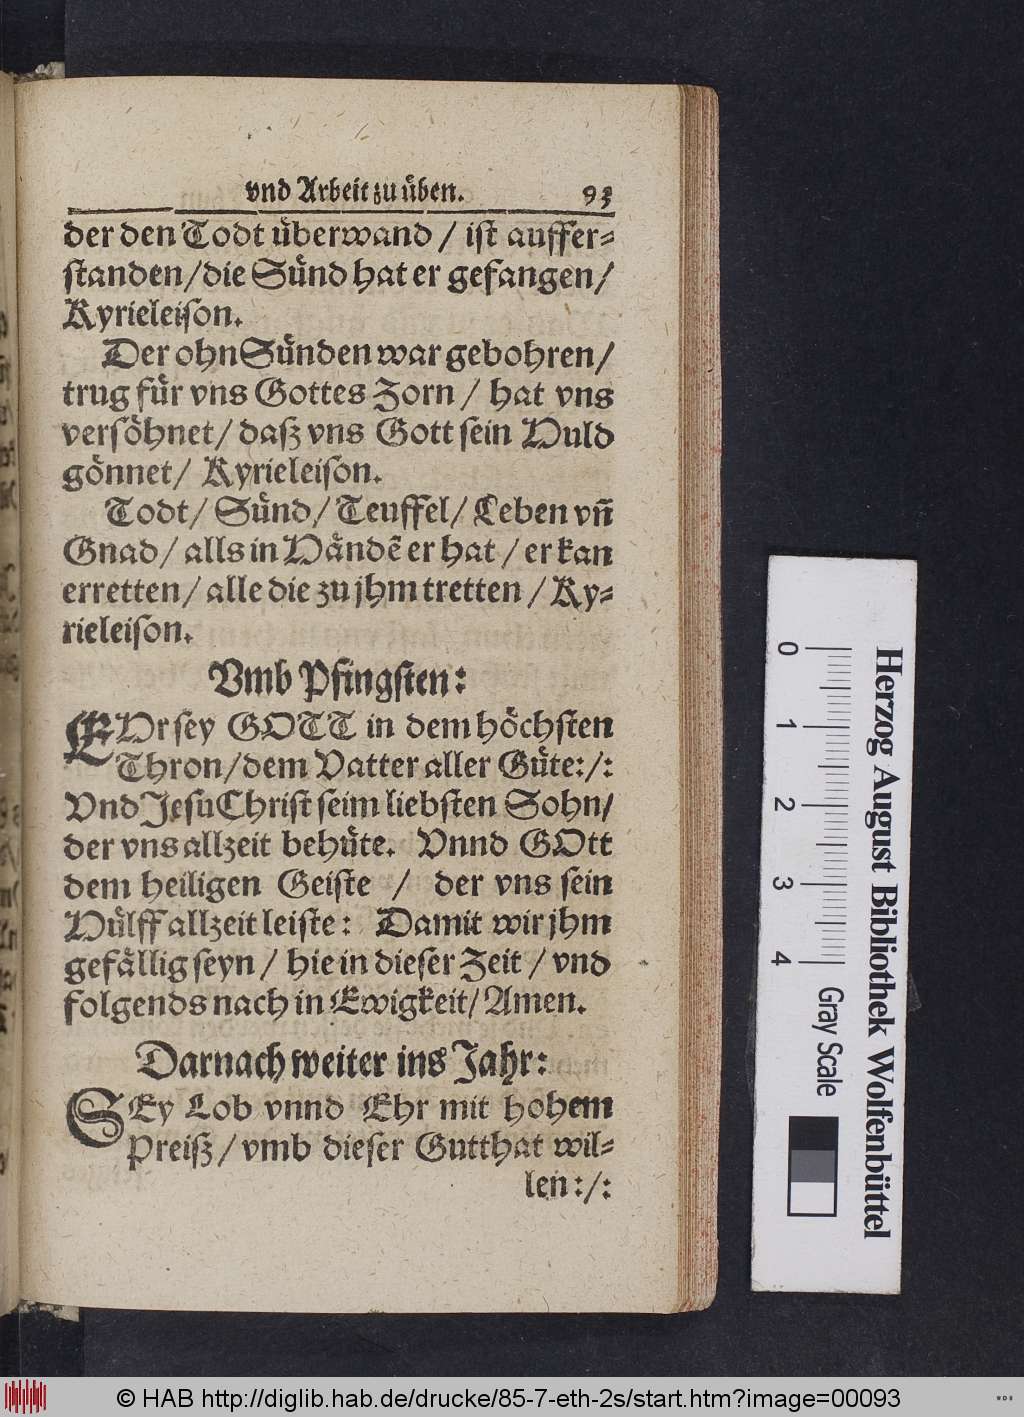 vnd Arbeit zu üben. 93
der den Todt überwand / ist auffer-
standen / die Sünd hat er gefangen /
Kyrieleison.
Der ohn Sünden war gebohren /
trug für vns Gottes Zorn / hat vns
versöhnet / daß vns Gott sein Huld
gönnet / Kyrieleison.
Todt / Sünd / Teuffel / Leben vñ
Gnad / alls in Händẽ er hat / er kan
erretten / alle die zu jhm tretten / Ky-
rieleison.
Vmb Pfingsten:
EHr sey GOTT in dem höchsten
Thron / dem Vatter aller Güte:/:
Vnd Jesu Christ seim liebsten Sohn /
der vns allzeit behüte. Vnnd GOtt
dem heiligen Geiste / der vns sein
Hülff allzeit leiste: Damit wir jhm
gefällig seyn / hie in dieser Zeit / vnd
folgends nach in Ewigkeit / Amen.
Darnach weiter ins Jahr:
SEy Lob vnnd Ehr mit hohem
Preiß / vmb dieser Gutthat wil-
len:/:
Herzog August Bibliothek Wolfenbüttel
0 1 2 3 4
Gray Scale
© HAB http://diglib.hab.de/drucke/85-7-eth-2s/start.htm?image=00093